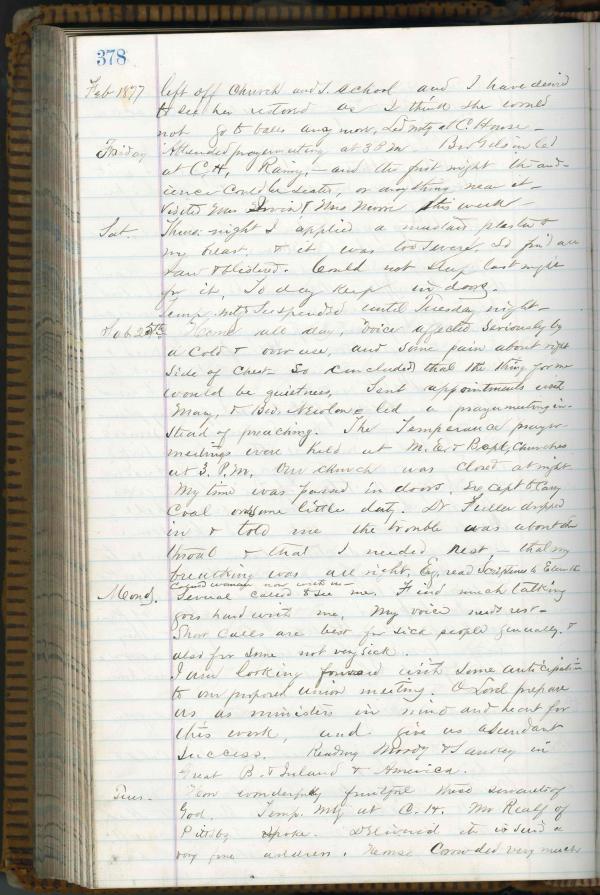 378
Feb 1877 left off Church and S. School and I have desired
to see her restored as I think she would
not go to balls any more. Led mtg at C. House –
Friday Attended prayer meeting at 3 P.M. Bro led
at C.H. Rainy, – and the first night the aud-
ience could be seated, or anything near it –
Visited Mrs Irvin & Mrs Moore this week –
Sat. Thurs. night I applied a mustard plaster to
my breast, & it was too severe, so find all
raw & blistered. Could not sleep last night
for it, To day keep in doors.
Temp. mtgs Suspended until Tuesday night –
Feb 25th Home all day, Voice affected seriously by
a cold & over use, and some pain about right
side of chest. So concluded that the thing for me
would be quietness. Sent appointments with
Mary, & Bro. Newlon led a prayermeeting in-
stead of preaching. The Temperance prayer
meetings were held at M.E. & Bapt. Churches
at 3. P.M. Our church was closed at night
My time was passed in doors, except to carry
Coal or some little duty. Dr Fuller dropped
in & told me the trouble was about the
throat & that I needed rest, – that my
breathing was all right. Eg. read Scriptures to Ellen &c
Mond. Several called to see me. Find much talking
goes hard with me. My voice needs rest –
Short calls are best for sick people generally. &
also for some not very sick.
I am looking forward with some anticipation
to our proposed union meeting. O Lord prepare
us as ministers in mind and heart for
this work, and give us abundant
success. Reading Moody & Sankey in
Great B. & Ireland & America.
Tues. How wonderfully fruitful these servants of
God. Temp. Mtg at C.H. Mr Realf of
Pittsbg spoke. Delivered it is said a
very fine address. House Crowded very much